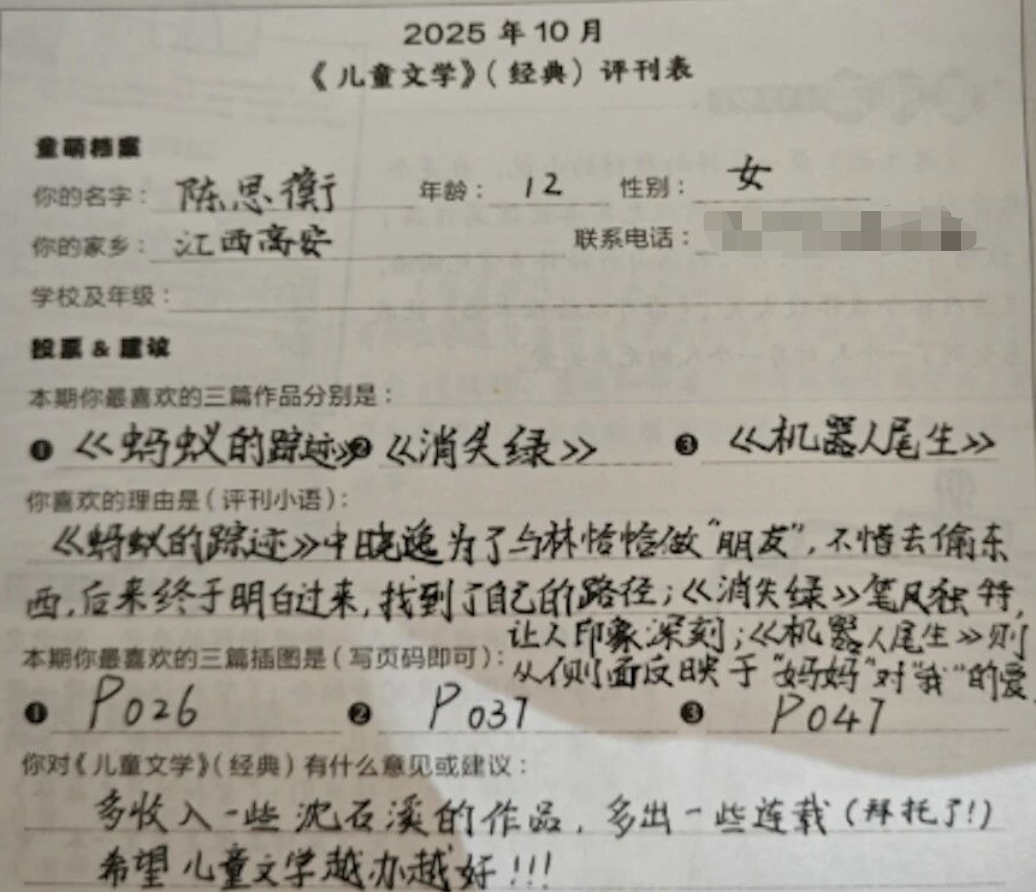 2025 年 10 月
《儿童文学》(经典) 评刊表
童萌档案
你的名字： 陈思衡 年龄： 12 性别： 女
你的家乡： 江西高安 联系电话：
学校及年级：
投票 & 建议
本期你最喜欢的三篇作品分别是：
❶ 《蚂蚁的踪迹》 ❷ 《消失绿》 ❸ 《机器人尾生》
你喜欢的理由是(评刊小语)：
《蚂蚁的踪迹》中晓逸为了与林恰恰做“朋友”，不惜去偷东
西，后来终于明白过来，找到了自己的路径；《消失绿》笔风独特，
让人印象深刻；《机器人尾生》则
从侧面反映于“妈妈”对“我”的爱
本期你最喜欢的三篇插图是(写页码即可)：
❶ P026 ❷ P037 ❸ P047
你对《儿童文学》(经典) 有什么意见或建议：
多收入一些沈石溪的作品，多出一些连载(拜托了!)
希望儿童文学越办越好!!!